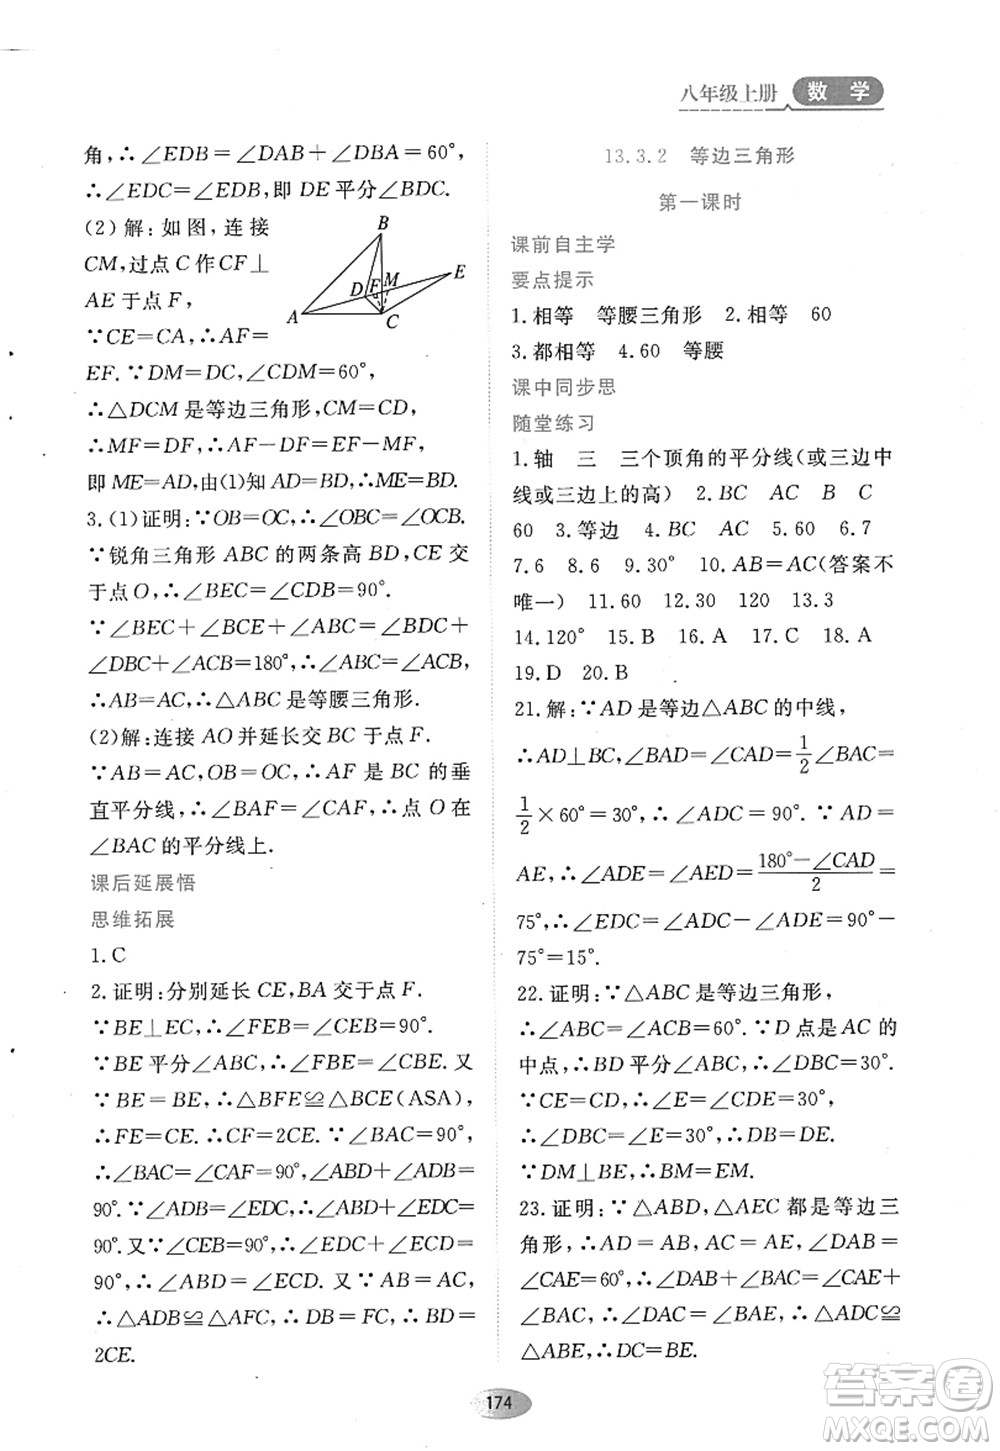 八年级上册 数学
角,∴∠EDB=∠DAB+∠DBA=60°,
∴∠EDC=∠EDB,即 DE平分∠BDC.
(2)解:如图,连接
CM,过点 C 作 CF⊥
AE于点 F,
∵CE=CA,∴AF=
EF.∵DM=DC,∠CDM=60°,
∴△DCM是等边三角形,CM=CD,
∴MF=DF,∴AF-DF=EF-MF,
即ME=AD,由(1)知AD=BD,∴ME=BD.
B
D
F
M
E
A
C
3.(1)证明:∵OB=OC,∴∠OBC=∠OCB.
∵锐角三角形 ABC 的两条高 BD,CE 交
于点 O,∴∠BEC=∠CDB=90°.
∵∠BEC+∠BCE+∠ABC=∠BDC+
∠DBC+∠ACB=180°,∴∠ABC=∠ACB,
∴AB=AC,∴△ABC是等腰三角形.
(2)解:连接 AO并延长交 BC 于点 F.
∵AB=AC,OB=OC,∴AF 是 BC 的垂
直平分线,∴∠BAF=∠CAF,∴点 O 在
∠BAC的平分线上.
课后延展悟
思维拓展
1.C
2.证明:分别延长CE,BA交于点 F.
∵BE⊥EC,∴∠FEB=∠CEB=90°.
∵BE平分∠ABC,∴∠FBE=∠CBE.又
∵BE=BE,∴△BFE≌△BCE(ASA),
∴FE=CE.∴CF=2CE.∵∠BAC=90°,
∴∠BAC=∠CAF=90°,∠ABD+∠ADB=
90°.∵∠ADB=∠EDC,∴∠ABD+∠EDC=
90°.又∵∠CEB=90°,∴∠EDC+∠ECD=
90°,∴∠ABD=∠ECD.又∵AB=AC,
∴△ADB≌△AFC,∴DB=FC,∴DB=
2CE.
13.3.2 等边三角形
第一课时
课前自主学
要点提示
1.相等 等腰三角形 2.相等 60
3.都相等 4.60 等腰
课中同步思
随堂练习
1.轴 三 三个顶角的平分线(或三边中
线或三边上的高) 2.BC AC B C
60 3.等边 4.BC AC 5.60 6.7
7.6 8.6 9.30° 10.AB=AC(答案不
唯一) 11.60 12.30 120 13.3
14.120° 15.B 16.A 17.C 18.A
19.D 20.B
21.解:∵AD是等边△ABC的中线,
∴AD⊥BC,∠BAD=∠CAD=1/2∠BAC=
1/2×60°=30°,∴∠ADC=90°.∵AD=
AE,∴∠ADE=∠AED=(180°-∠CAD)/2=
75°,∴∠EDC=∠ADC-∠ADE=90°-
75°=15°.
22.证明:∵△ABC是等边三角形,
∴∠ABC=∠ACB=60°.∵D点是AC的
中点,∴BD平分∠ABC,∴∠DBC=30°.
∵CE=CD,∴∠E=∠CDE=30°,
∴∠DBC=∠E=30°,∴DB=DE.
∵DM⊥BE,∴BM=EM.
23.证明:∵△ABD,△AEC都是等边三
角形,∴AD=AB,AC=AE,∠DAB=
∠CAE=60°,∴∠DAB+∠BAC=∠CAE+
∠BAC,∴∠DAC=∠BAE,∴△DAC≌
△ABE,∴DC=BE.
174
答案圈
MXQE.COM